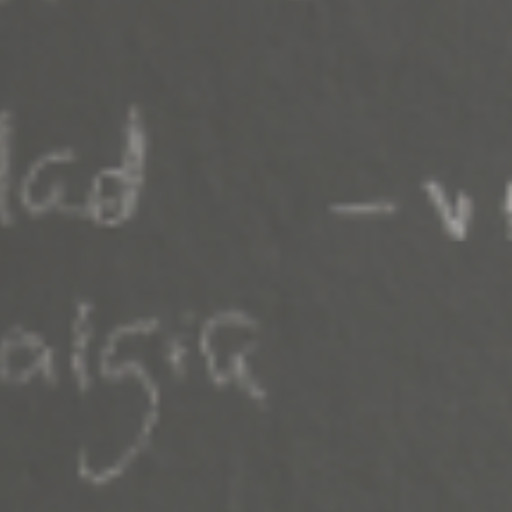 lad - v
algia